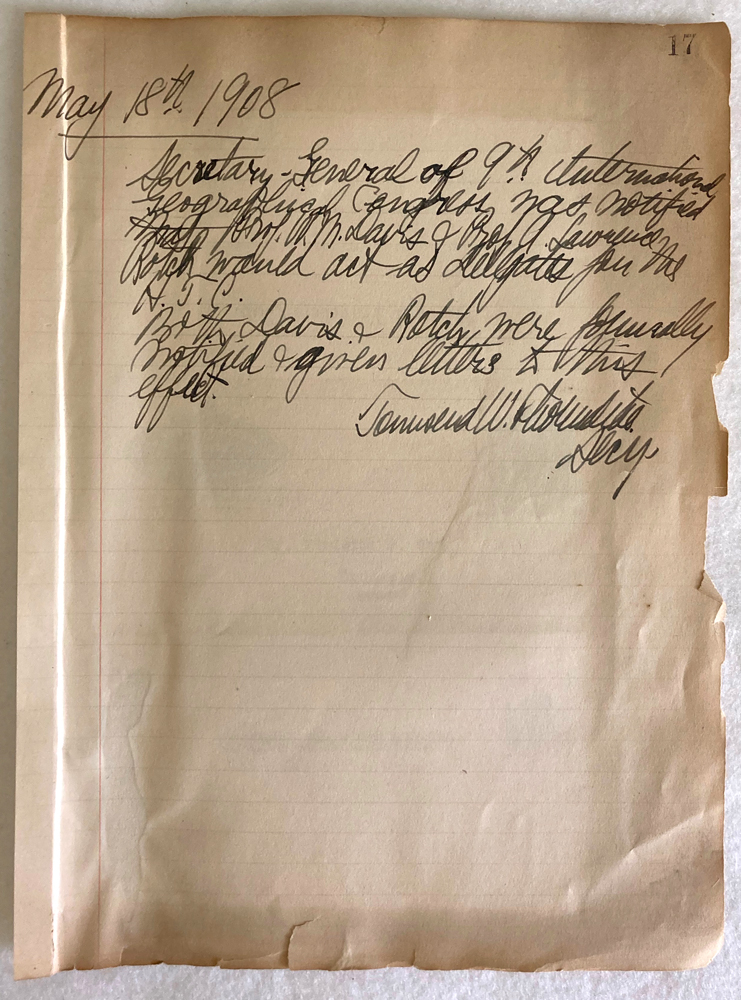 17
May 18th 1908
Secretary-General of 9th International
Geographical Congress was notified
that Prof. W. M. Davis & Prof. A. Lawrence
Rotch would act as delegates for the
H. T. C.
Both Davis & Rotch were formally
notified & given letters to this
effect.
Townsend W. Thorndike
Secy.